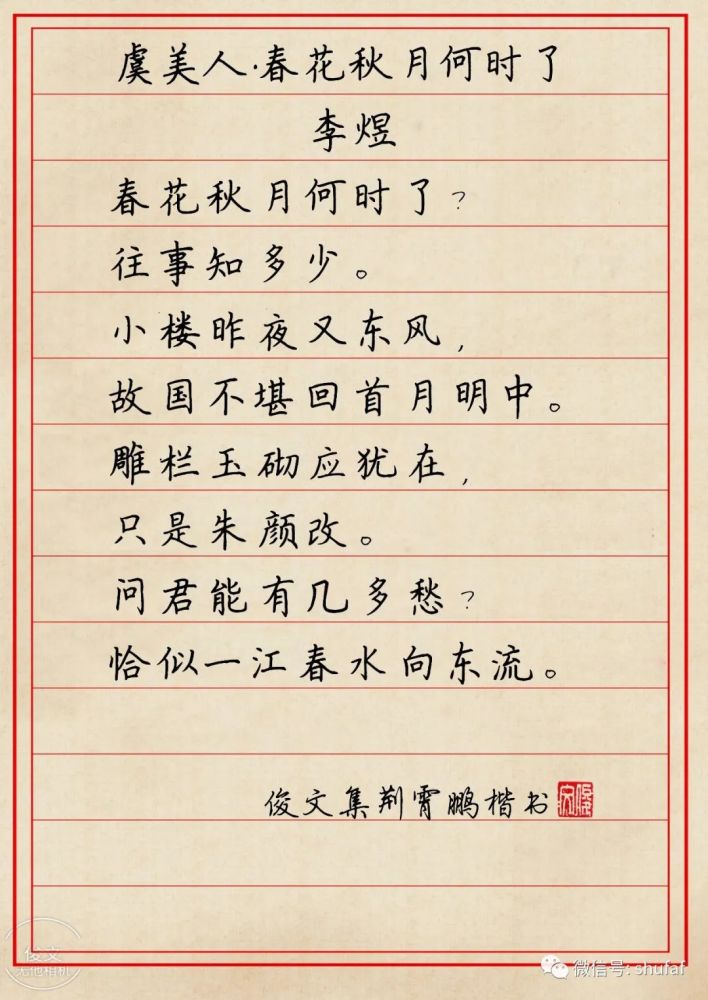 虞美人·春花秋月何时了
李煜
春花秋月何时了?
往事知多少。
小楼昨夜又东风,
故国不堪回首月明中。
雕栏玉砌应犹在,
只是朱颜改。
问君能有几多愁?
恰似一江春水向东流。
俊文集荆霄鹏楷书
俊文
无他相机
微信号: shufaf